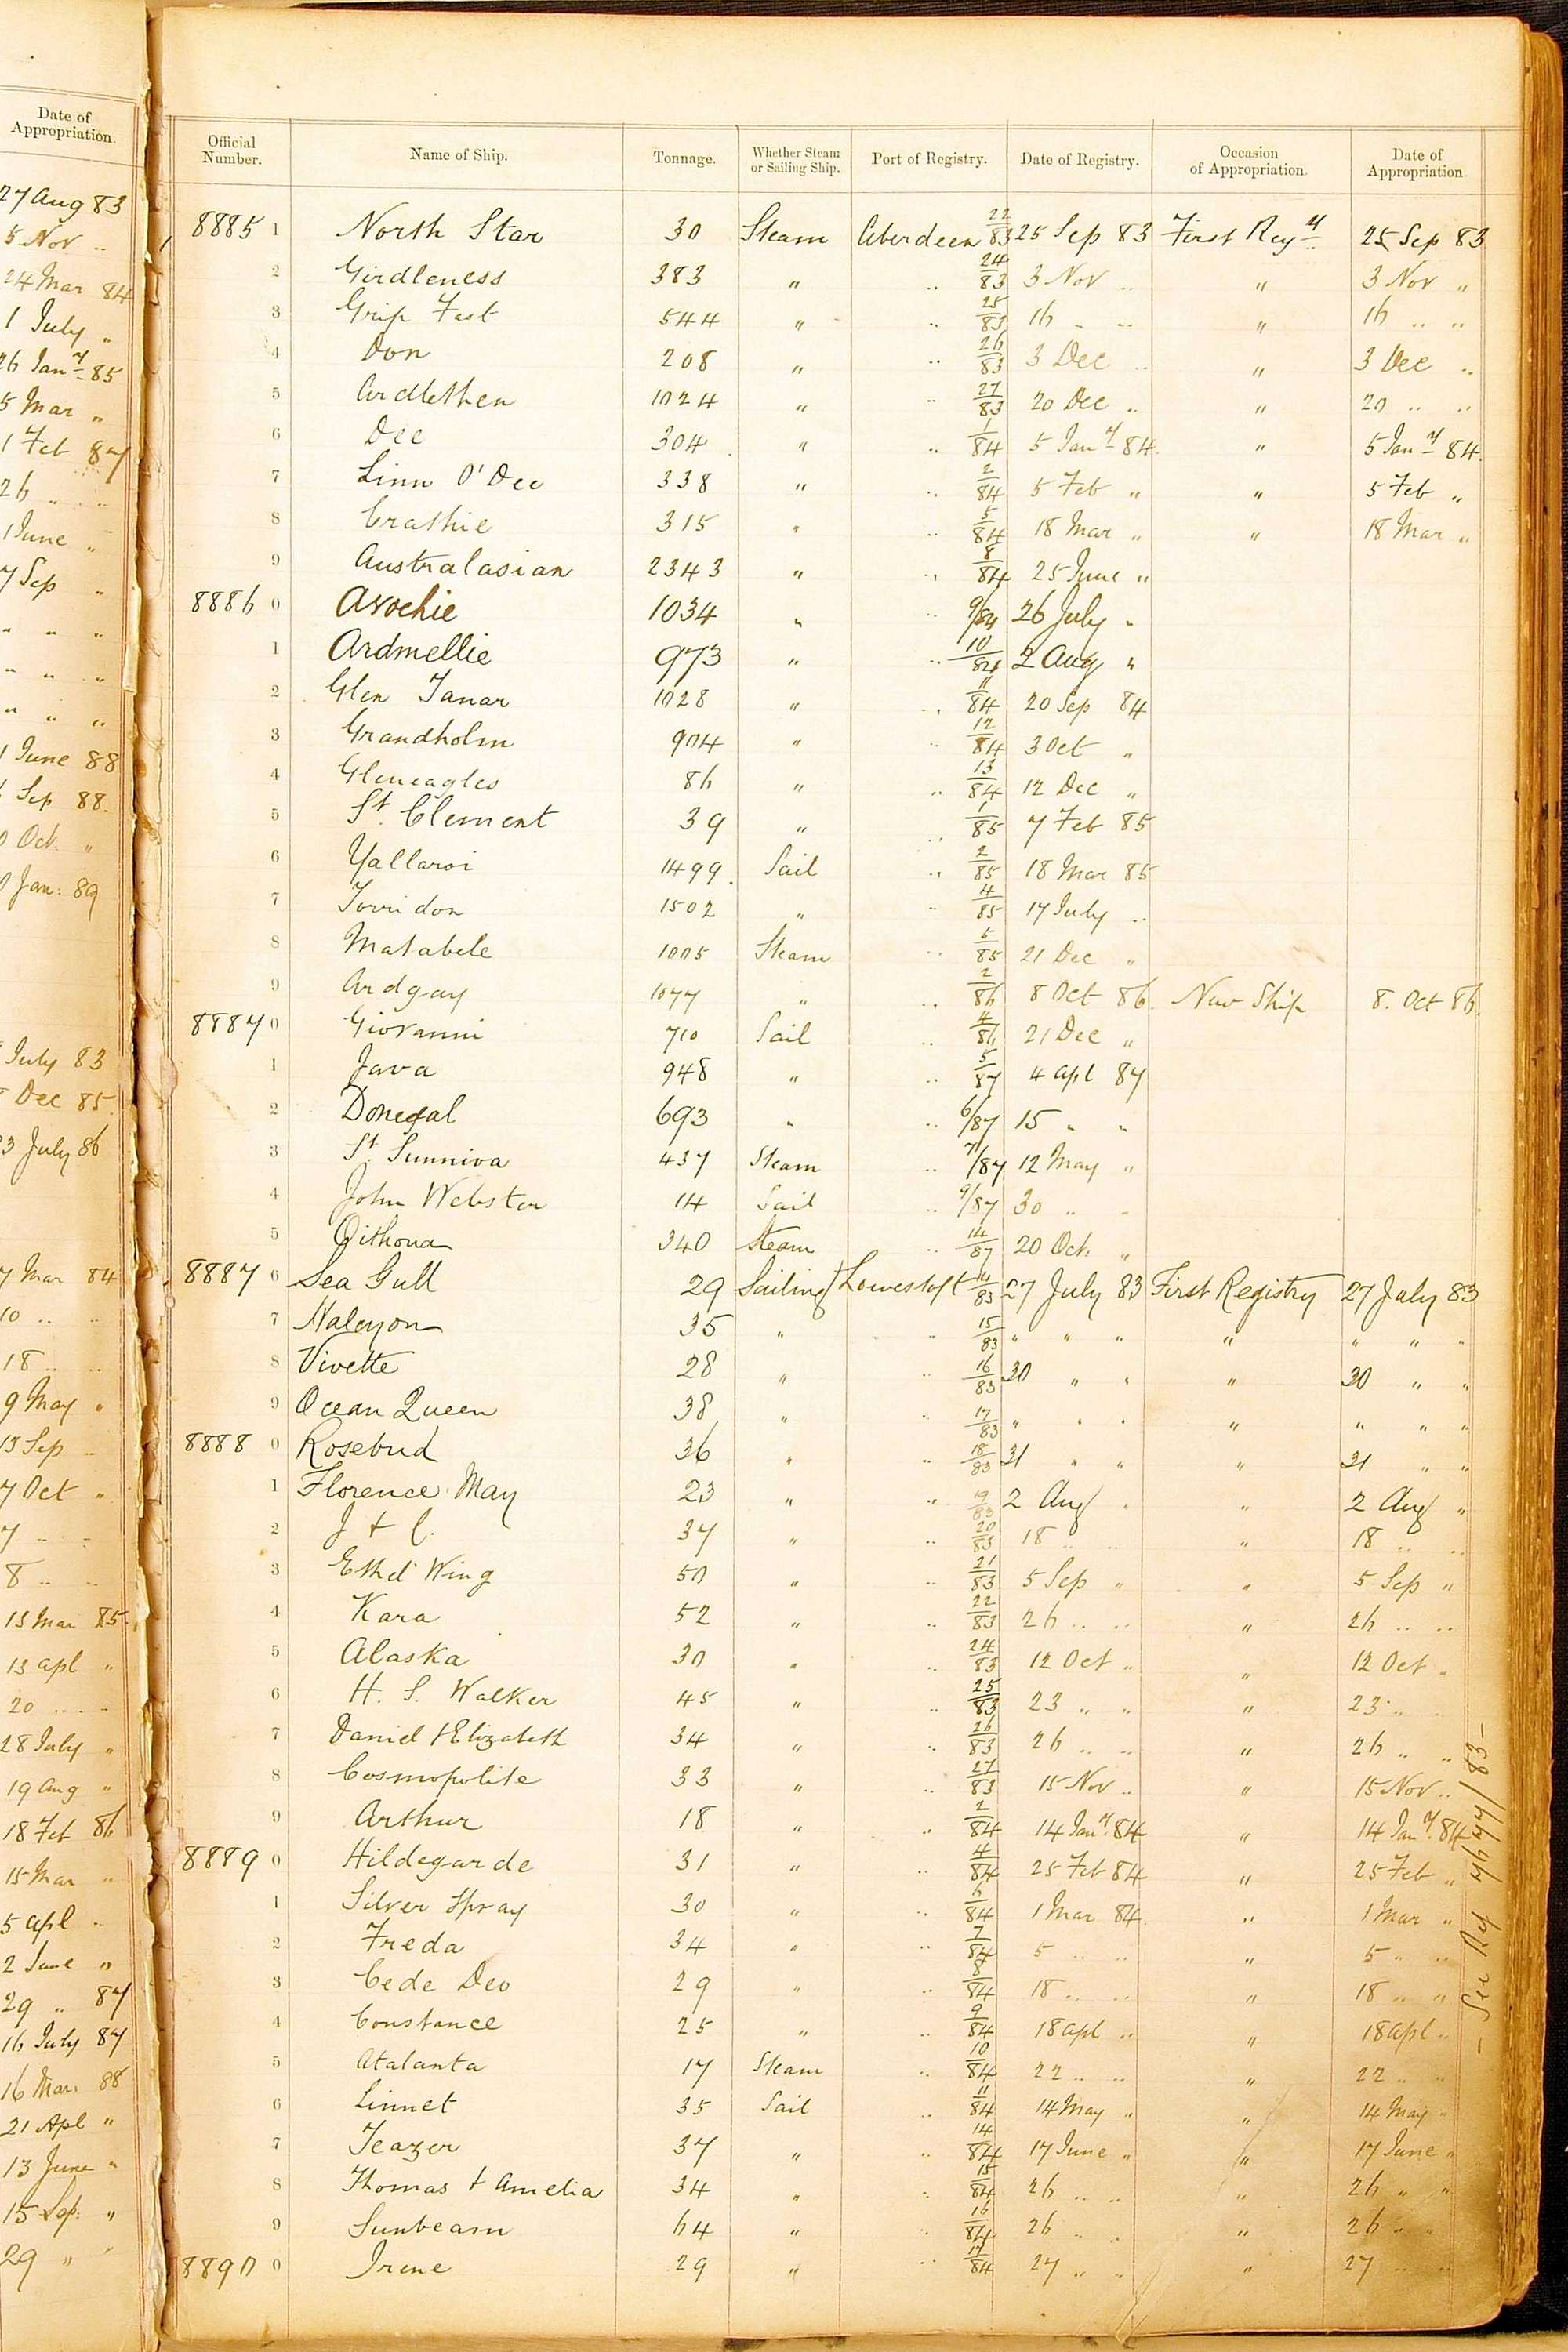 Date of
Appropriation.
27 Aug 83
5 Nov ..
24 Mar 84
1 July "
26 Jany 85
5 Mar "
1 Feb 87
26 .. ..
1 June "
7 Sep "
" " "
" " "
" " "
1 June 88
Sep 88.
Oct. "
Jan: 89
July 83
Dec 85.
3 July 86
7 Mar 84
10 .. ..
18 .. ..
9 May "
13 Sep ..
7 Oct "
7 .. ..
8 .. ..
13 Mar 85.
13 Apl "
20 .. ..
28 July "
19 Aug "
18 Feb 86
15 Mar "
5 Apl ..
2 June "
29 .. 87
16 July 87
16 Mar. 88
21 Apl "
13 June "
15 Sep. "
29 " "
Official Number. Name of Ship. Tonnage. Whether Steam or Sailing Ship. Port of Registry. Date of Registry. Occasion of Appropriation. Date of Appropriation.
8885 1 North Star 30 Steam Aberdeen 22/83 25 Sep 83 First Regy 25 Sep 83
2 Girdleness 383 " .. 24/83 3 Nov .. " 3 Nov "
3 Grip Fast 544 " .. 25/83 16 .. .. " 16 .. ..
4 Don 208 " .. 26/83 3 Dec .. " 3 Dec ..
5 Ardlethen 1024 " .. 27/83 20 Dec .. " 20 .. ..
6 Dee 304 " .. 1/84 5 Jany 84. " 5 Jany 84.
7 Linn O'Dee 338 " .. 2/84 5 Feb " " 5 Feb "
8 Crathie 315 " .. 5/84 18 Mar " " 18 Mar "
9 Australasian 2343 " .. 8/84 25 June "
8886 0 Avochie 1034 " .. 9/84 26 July "
1 Ardmellie 973 " .. 10/84 2 Aug "
2 Glen Tanar 1028 " .. 11/84 20 Sep 84
3 Grandholm 904 " .. 12/84 3 Oct "
4 Gleneagles 86 " .. 13/84 12 Dec "
5 St. Clement 39 " .. 1/85 7 Feb 85
6 Yallaroi 1499. Sail .. 2/85 18 Mar 85
7 Torridon 1502 " .. 4/85 17 July ..
8 Matabele 1005 Steam .. 5/85 21 Dec "
9 Ardgay 1077 " .. 2/86 8 Oct 86. New Ship 8. Oct 86.
8887 0 Giovanni 710 Sail .. 4/86 21 Dec "
1 Java 948 " .. 5/87 4 Apl 87
2 Donegal 693 " .. 6/87 15 " "
3 St. Sunniva 437 Steam .. 7/87 12 May "
4 John Webster 14 Sail .. 9/87 30 .. ..
5 Oithona 340 Steam .. 14/87 20 Oct. "
8887 6 Sea Gull 29 Sailing Lowestoft 11/83 27 July 83 First Registry 27 July 83
7 Halcyon 35 " .. 15/83 " " " " " " "
8 Vivette 28 " .. 16/83 30 " " " 30 " "
9 Ocean Queen 38 " .. 17/83 " " " " " " "
8888 0 Rosebud 36 " .. 18/83 31 " " " 31 " "
1 Florence May 23 " .. 19/83 2 Aug " " 2 Aug "
2 J & C. 37 " .. 20/83 18 .. .. " 18 .. ..
3 Ethel Wing 50 " .. 21/83 5 Sep " " 5 Sep "
4 Kara 52 " .. 22/83 26 .. .. " 26 .. ..
5 Alaska 30 " .. 24/83 12 Oct .. " 12 Oct ..
6 H. S. Walker 45 " .. 25/83 23 .. .. " 23 ..
7 Daniel & Elizabeth 34 " .. 26/83 26 .. .. " 26 .. ..
8 Cosmopolite 33 " .. 27/83 15 Nov .. " 15 Nov ..
9 Arthur 18 " .. 2/84 14 Jany. 84 " 14 Jany. 84
8889 0 Hildegarde 31 " .. 4/84 25 Feb 84 " 25 Feb "
1 Silver Spray 30 " .. 6/84 1 Mar 84. " 1 Mar "
2 Freda 34 " .. 7/84 5 .. .. " 5 .. ..
3 Cede Deo 29 " .. 8/84 18 .. .. " 18 .. "
4 Constance 25 " .. 9/84 18 Apl .. " 18 Apl ..
5 Atalanta 17 Steam .. 10/84 22 .. .. " 22 .. ..
6 Linnet 35 Sail .. 11/84 14 May " " 14 May ..
7 Teazer 37 " .. 14/84 17 June " " 17 June "
8 Thomas & Amelia 34 " .. 15/84 26 .. .. " 26 " "
9 Sunbeam 64 " .. 16/84 26 .. .. " 26 ..
8890 0 Irene 29 " .. 17/84 27 .. .. " 27 .. ..
- See Reg 7677/83 -